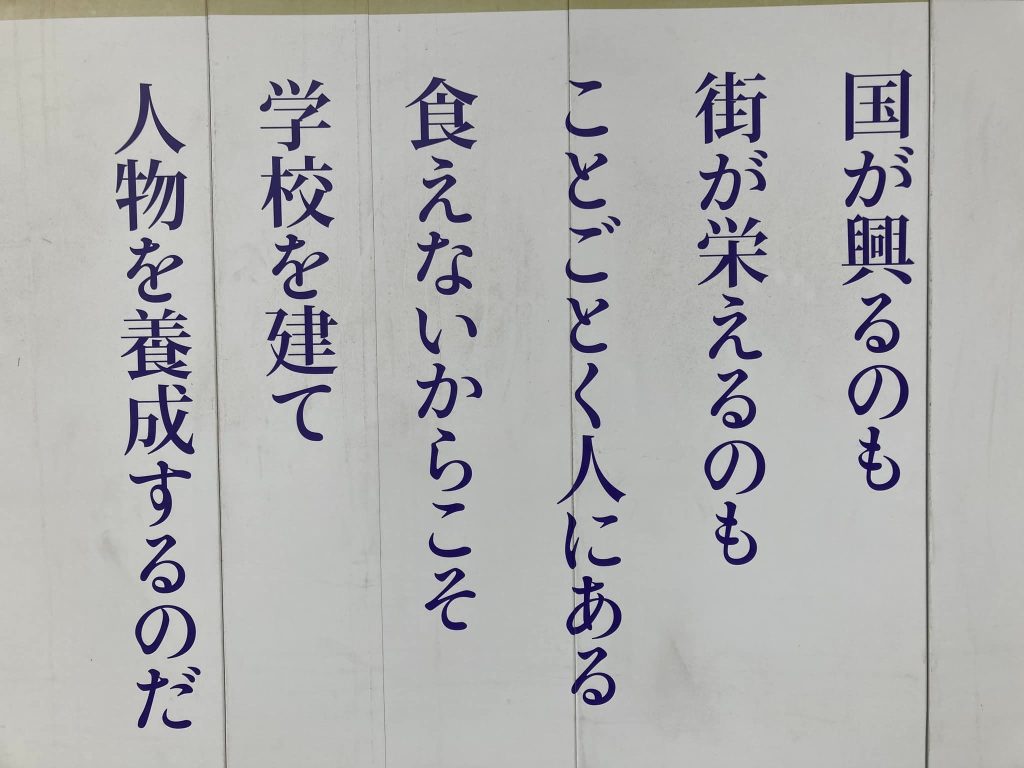 国が興るのも
街が栄えるのも
ことごとく人にある
食えないからこそ
学校を建て
人物を養成するのだ